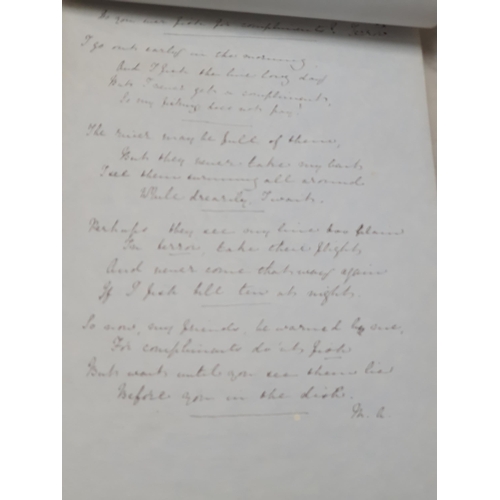 Do you ever fish for compliments?
I go out early in the morning.
And I fish the live long day
But I never get a compliment,
So my fishing does not pay!
The river may be full of them,
But they never take my bait,
I see them swimming all around
While drearily, I wait.
Perhaps they see my line too plain
In terror, take their flight,
And never come that way again
If I fish till ten at night.
So now, my friends, be warned by me,
For compliments don't fish
But wait until you see them lie
Before you in the dish.
M. A.